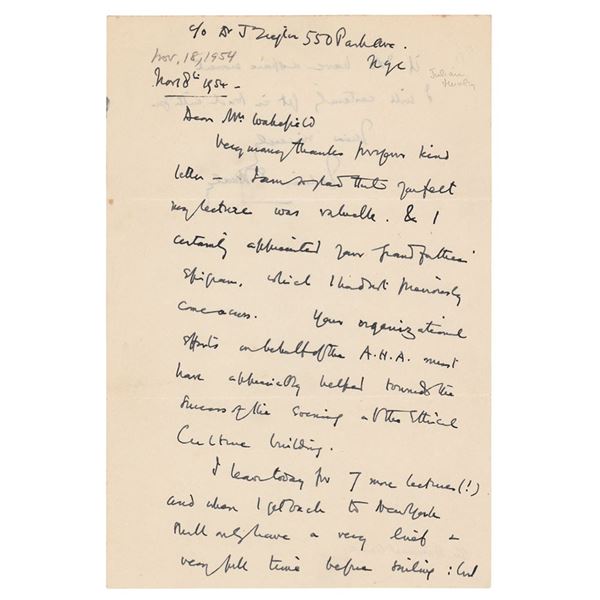 c/o Dr J Ziegler 550 Park Ave.
NYC
Nov. 18, 1954
Julian Huxley
Nov 18th 1954 -
Dear Mrs Wakefield
Very many thanks for your kind
letter - I am so glad that you felt
my lecture was valuable. & I
certainly appreciated your grandfather's
epigram, which I had not previously
come across. Your organizational
efforts on behalf of the A.H.A. must
have appreciably helped towards the
success of the evening at the Ethical
Culture building.
I leave today for 7 more lectures (!)
and when I get back to New York
shall only have a very brief &
very full time before sailing: but